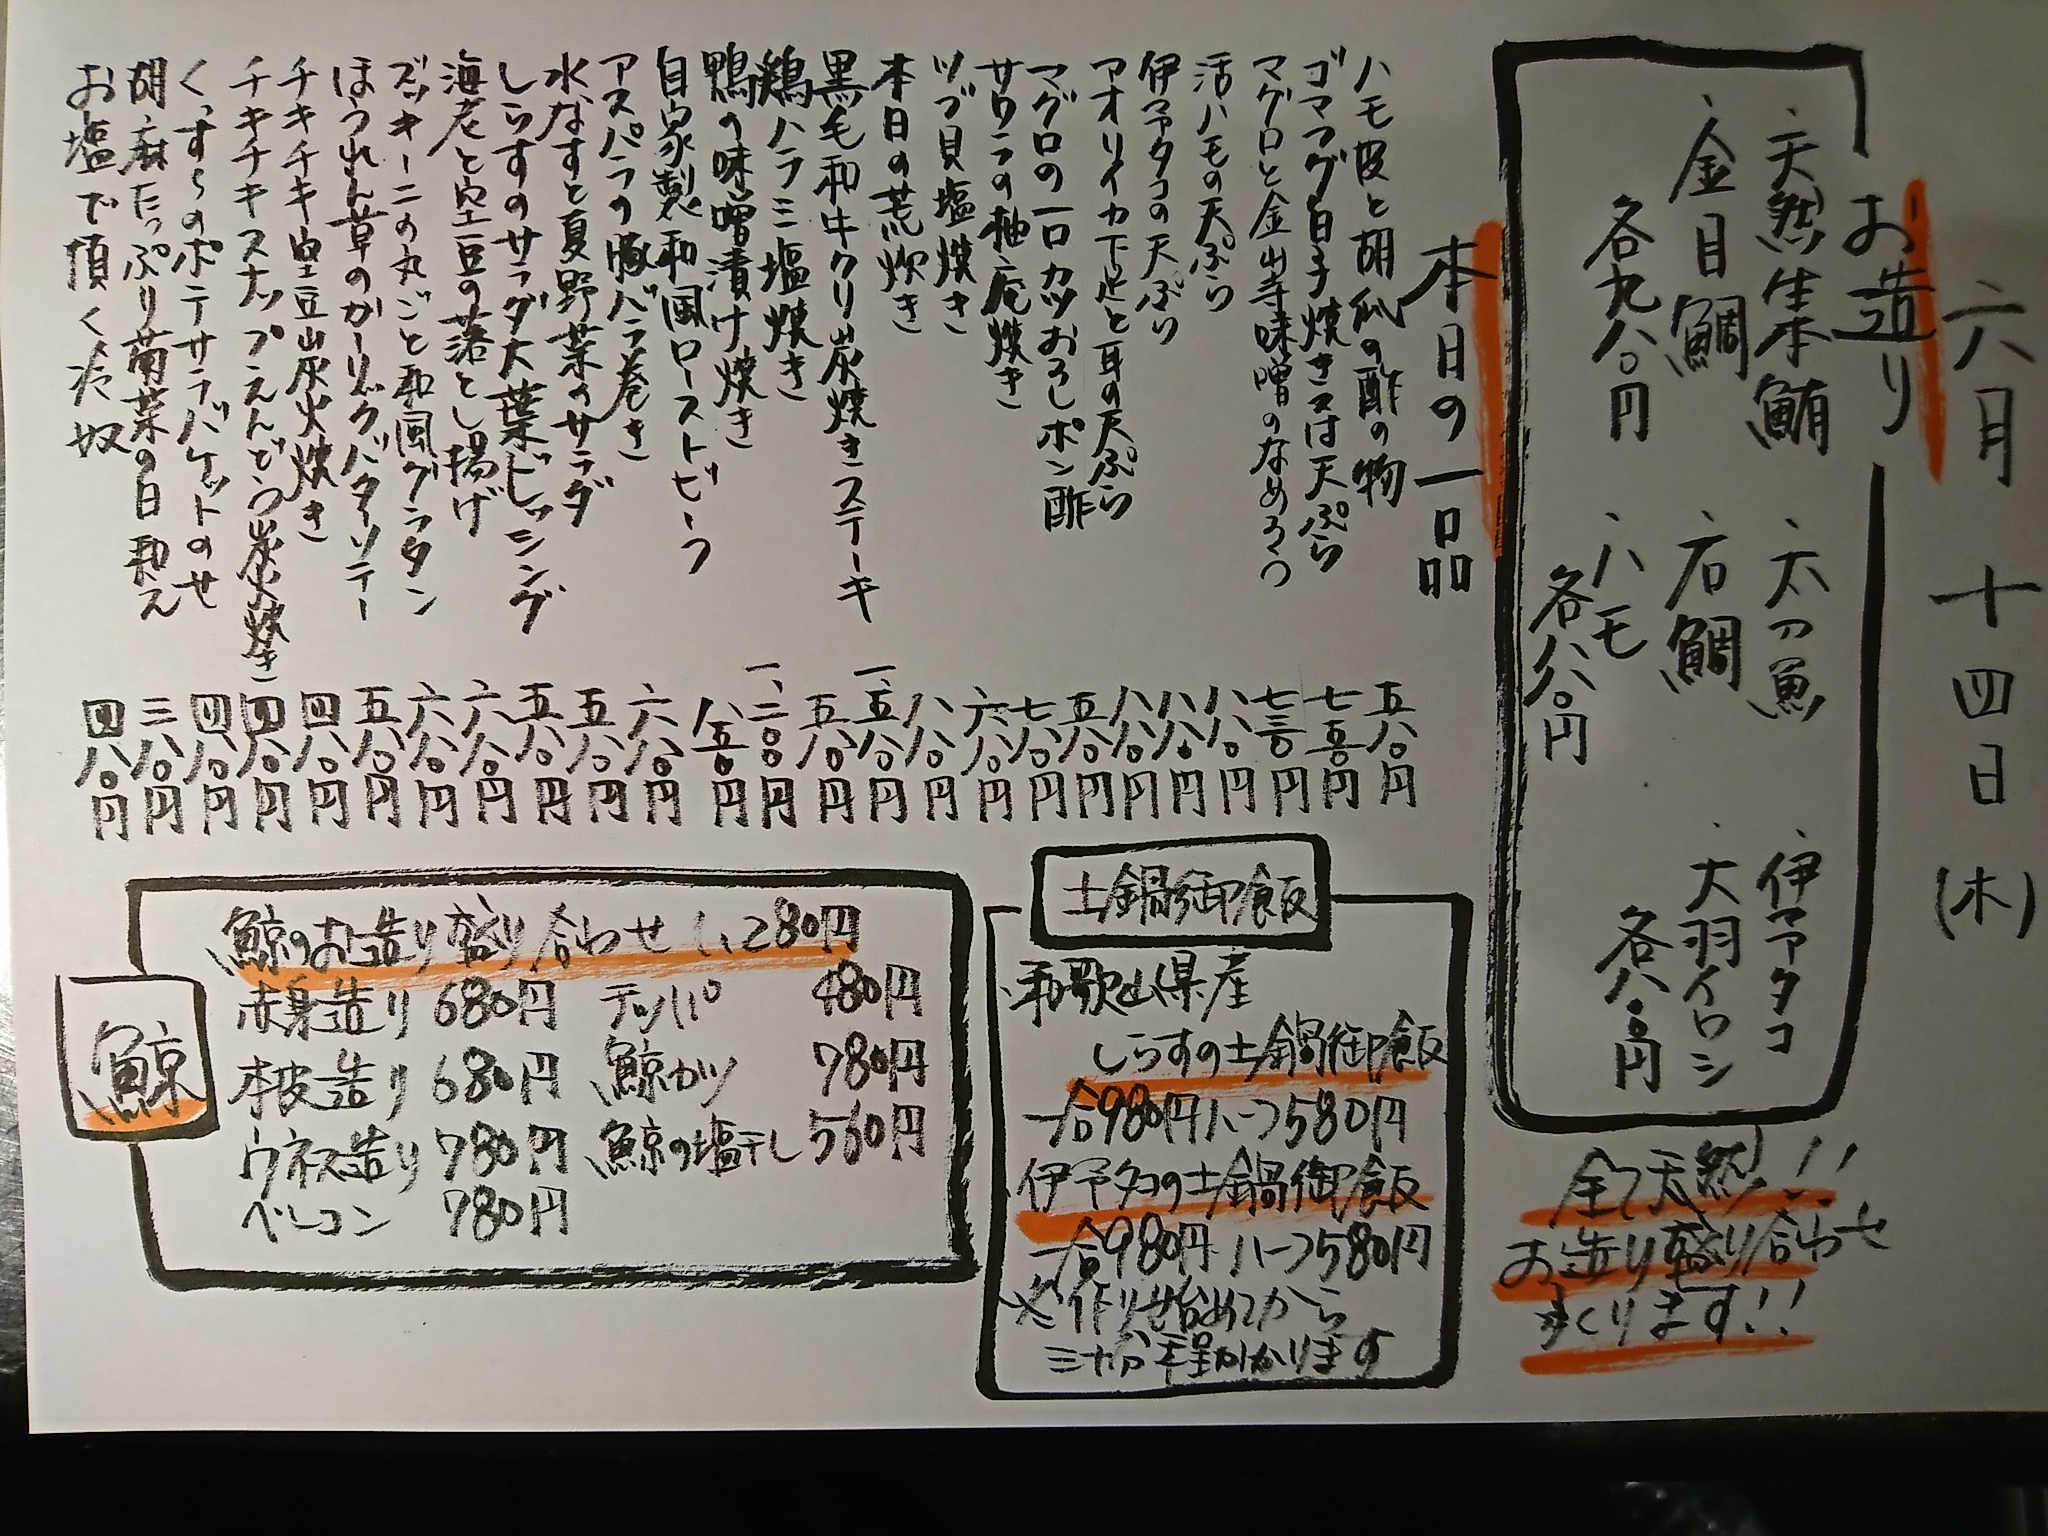 六月十四日(木)
お造り
、天然生本鮪
、金目鯛
各九八〇円
、太刀魚
、石鯛
、ハモ
各八八〇円
、伊予タコ
、大羽イワシ
各八八〇円
全て天然!!
お造り盛り合わせ
つくります!!
本日の一品
ハモ皮と胡瓜の酢の物 五八〇円
ゴマフグ白子焼き又は天ぷら 七五〇円
マグロと金山寺味噌のなめろう 七三〇円
活ハモの天ぷら 八八〇円
伊予タコの天ぷら 八八〇円
アオリイカ下足と耳の天ぷら 八八〇円
マグロの一口カツおろしポン酢 五八〇円
サワラの柚庵焼き 七八〇円
ツブ貝塩焼き 六八〇円
本日の荒炊き 八八〇円
黒毛和牛クリ炭焼きステーキ 一、五八〇円
鶏ハラミ塩焼き 五八〇円
鴨の味噌漬け焼き 一、二〇〇円
自家製和風ローストビーフ 八五〇円
アスパラの豚バラ巻き 六八〇円
水なすと夏野菜のサラダ 五八〇円
しらすのサラダ大葉ドレッシング 五八〇円
海老と空豆の落とし揚げ 六八〇円
ズッキーニの丸ごと和風グラタン 六八〇円
ほうれん草のガーリックバターソテー 五八〇円
チキチキ空豆炭火焼き 四八〇円
チキチキスナップえんどう炭火焼き 四八〇円
くっすらのポテサラバケットのせ 四八〇円
胡麻たっぷり菊菜の白和え 三八〇円
お塩で頂く冷奴 四八〇円
土鍋御飯
、和歌山県産
しらすの土鍋御飯
一合980円ハーフ580円
、伊予タコの土鍋御飯
一合980円ハーフ580円
※作り始めてから
三十分程かかります
鯨
、鯨のお造り盛り合わせ 1,280円
赤身造り 680円 テッパ 480円
本皮造り 680円 鯨カツ 780円
ウネス造り 780円 鯨の塩干し 560円
ベーコン 780円